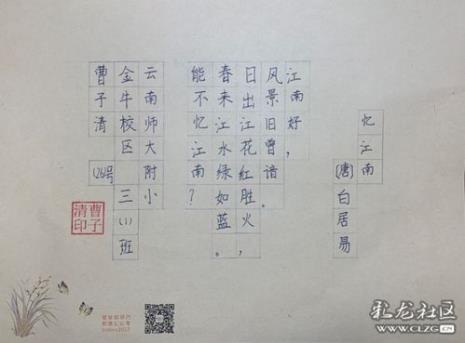 忆江南
(唐)白居易
江南好，
风景旧曾谙。
日出江花红胜火，
春来江水绿如蓝。
能不忆江南？
云南师大附小
金牛校区三(1)班
曹子清 号
曹子清印
彩龙社区
CLZG.CN